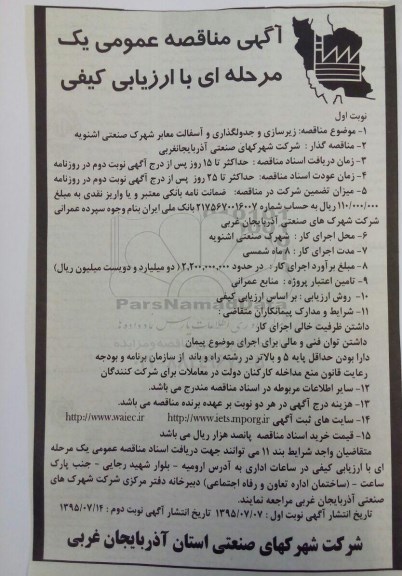 آگهی مناقصه عمومی یک
مرحله ای با ارزیابی کیفی
نوبت اول
۱- موضوع مناقصه: زیرسازی و جدولگذاری و آسفالت معابر شهرک صنعتی اشنویه
۲- مناقصه گذار : شرکت شهرکهای صنعتی آذربایجانغربی
۳- زمان دریافت اسناد مناقصه: حداکثر تا ۱۵ روز پس از درج آگهی نوبت دوم در روزنامه
۴- زمان عودت اسناد مناقصه: حداکثر تا ۲۵ روز پس از درج آگهی نوبت دوم در روزنامه
۵- میزان تضمین شرکت در مناقصه: ضمانت نامه بانکی معتبر و یا واریز نقدی به مبلغ
۱۱۰/۰۰۰/۰۰۰ ریال به حساب شماره ۲۱۷۵۶۷۰۰۱۶۰۰۷ بانک ملی ایران بنام وجوه سپرده عمرانی
شرکت شهرک های صنعتی آذربایجان غربی
۶- محل اجرای کار : شهرک صنعتی اشنویه
۷- مدت اجرای کار : ۸ ماه شمسی
۸- مبلغ برآورد اجرای کار : در حدود ۲,۲۰۰,۰۰۰,۰۰۰ ( دو میلیارد و دویست میلیون ریال)
۹- تامین اعتبار پروژه : منابع عمرانی
۱۰- روش ارزیابی : بر اساس ارزیابی کیفی
۱۱- شرایط و مدارک پیمانکاران متقاضی :
داشتن ظرفیت خالی اجرای کار
داشتن توان فنی و مالی برای اجرای موضوع پیمان
دارا بودن حداقل پایه ۵ و بالاتر در رشته راه و باند از سازمان برنامه و بودجه
رعایت قانون منع مداخله کارکنان دولت در معاملات برای شرکت کنندگان
۱۲- سایر اطلاعات مربوطه در اسناد مناقصه مندرج می باشد.
۱۳- هزینه درج آگهی در هر دو نوبت بر عهده برنده مناقصه می باشد.
۱۴- سایت های ثبت آگهی http://www.iets.mporg.ir http://www.waiec.ir
۱۵- قیمت خرید اسناد مناقصه پانصد هزار ریال می باشد
متقاضیان واجد شرایط بند ۱۱ می توانند جهت دریافت اسناد مناقصه عمومی یک مرحله
ای با ارزیابی کیفی در ساعات اداری به آدرس ارومیه - بلوار شهید رجایی - جنب پارک
ساعت - (ساختمان اداره تعاون و رفاه اجتماعی) دبیرخانه دفتر مرکزی شرکت شهرک های
صنعتی آذربایجان غربی مراجعه نمایند.
تاریخ انتشار آگهی نوبت اول : ۱۳۹۵/۰۷/۰۷ تاریخ انتشار آگهی نوبت دوم : ۱۳۹۵/۰۷/۱۴
شرکت شهرکهای صنعتی استان آذربایجان غربی
ParsNamadData